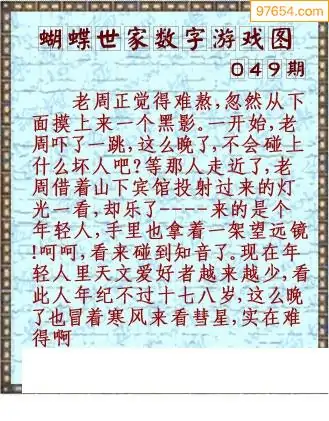 97654.com
蝴蝶世家数字游戏图
049期
老周正觉得难熬,忽然从下
面摸上来一个黑影。一开始,老
周吓了一跳,这么晚了,不会碰上
什么坏人吧?等那人走近了,老
周借着山下宾馆投射过来的灯
光一看,却乐了----来的是个
年轻人,手里也拿着一架望远镜
!呵呵,看来碰到知音了。现在年
轻人里天文爱好者越来越少,看
此人年纪不过十七八岁,这么晚
了也冒着寒风来看彗星,实在难
得啊